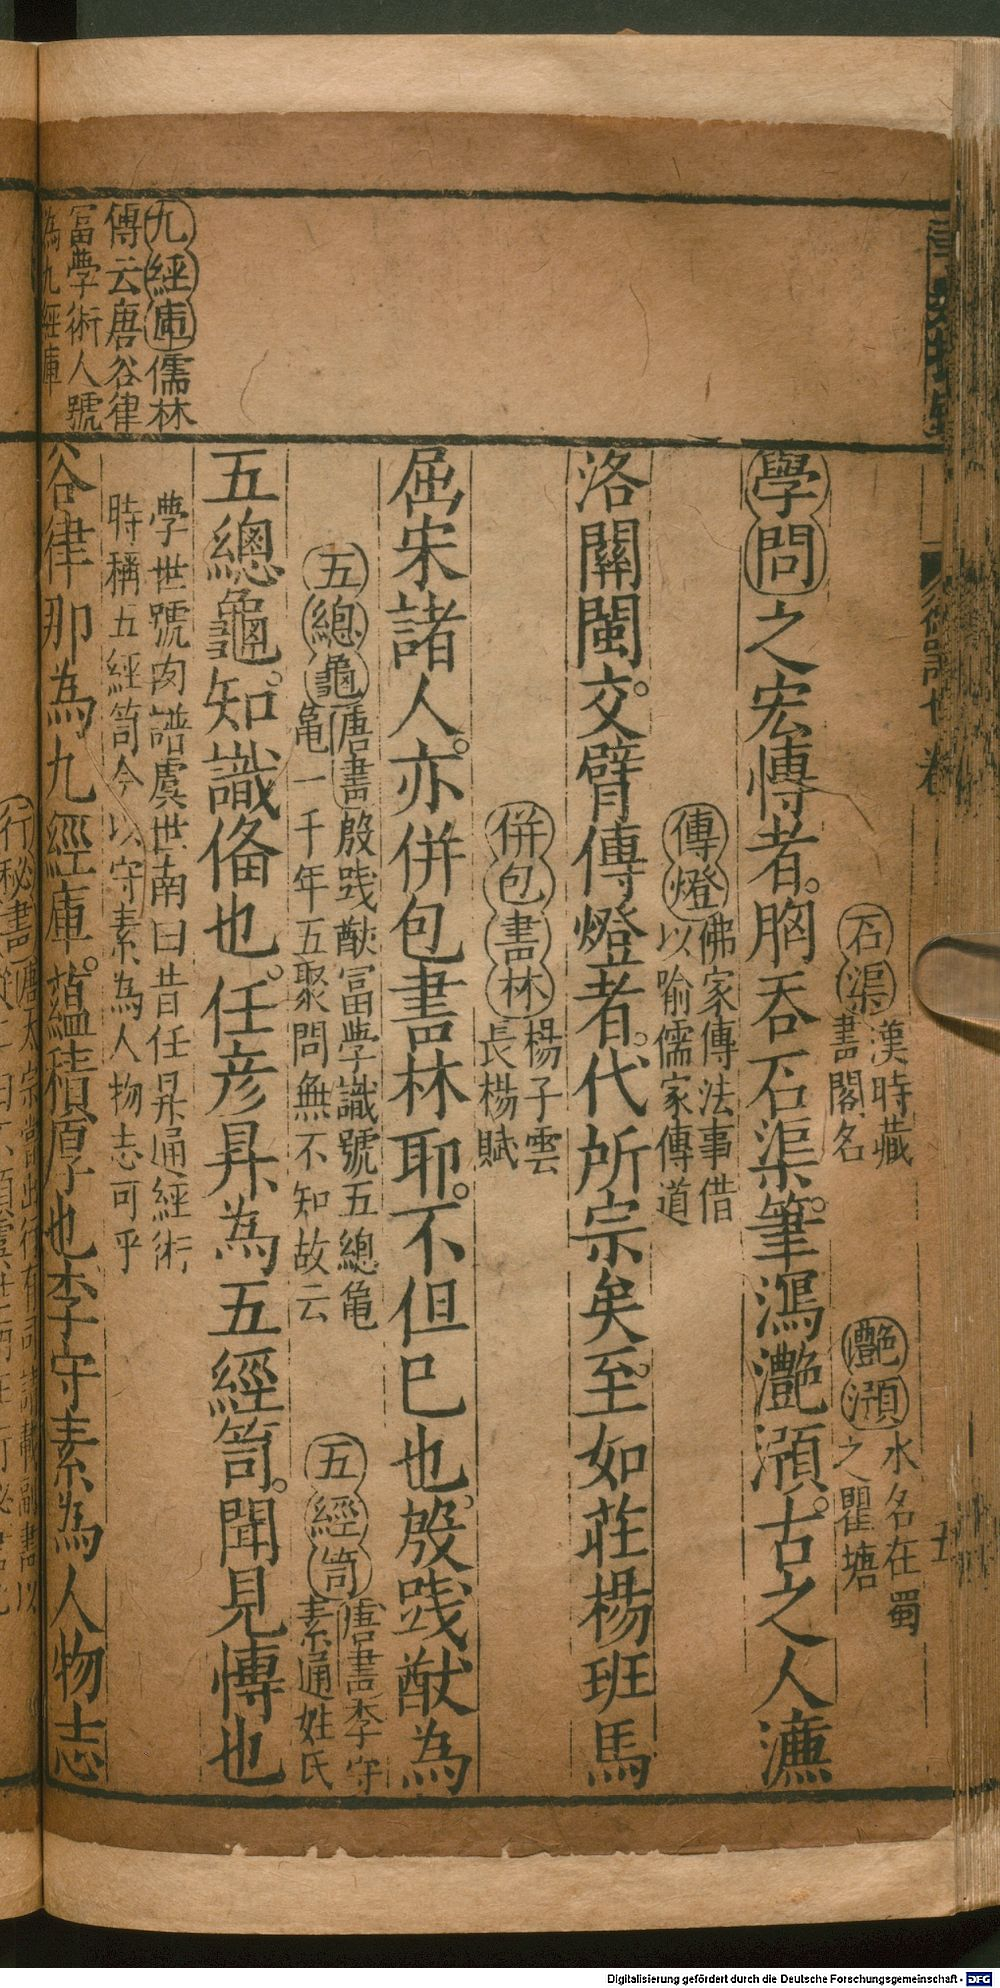 九經庫儒林
傳云唐谷律
冨學術人號
為九經庫
石渠漢時藏
書閣名
灔澦水名在蜀
之瞿塘
學問之宏博者。胸吞石渠。筆瀉灔澦。古之人濂
傳燈佛家傳法事借
以喻儒家傳道
洛關閩。交臂傳燈者。代所宗矣。至如莊楊班馬
併包書林楊子雲
長楊賦
屈宋諸人。亦併包書林耶。不但已也。殷踐猷為
五總龜唐書殷踐猷冨學識號五總龜
龜一千年五聚問無不知故云
五經笥唐書李守
素通姓氏
五總龜。知識俻也。任彦昇為五經笥。聞見博也
學世號肉譜虞世南曰昔任昇通經術
時稱五經笥今以守素為人物志可乎
谷律那為九經庫。蘊積厚也李守素為人物志
行秘書唐太宗嘗出行有司請載副書以
Digitalisierung gefördert durch die Deutsche Forschungsgemeinschaft - DFG